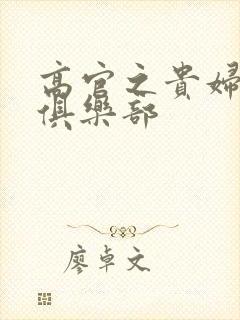 高官之貴婦
俱樂部
廖卓文